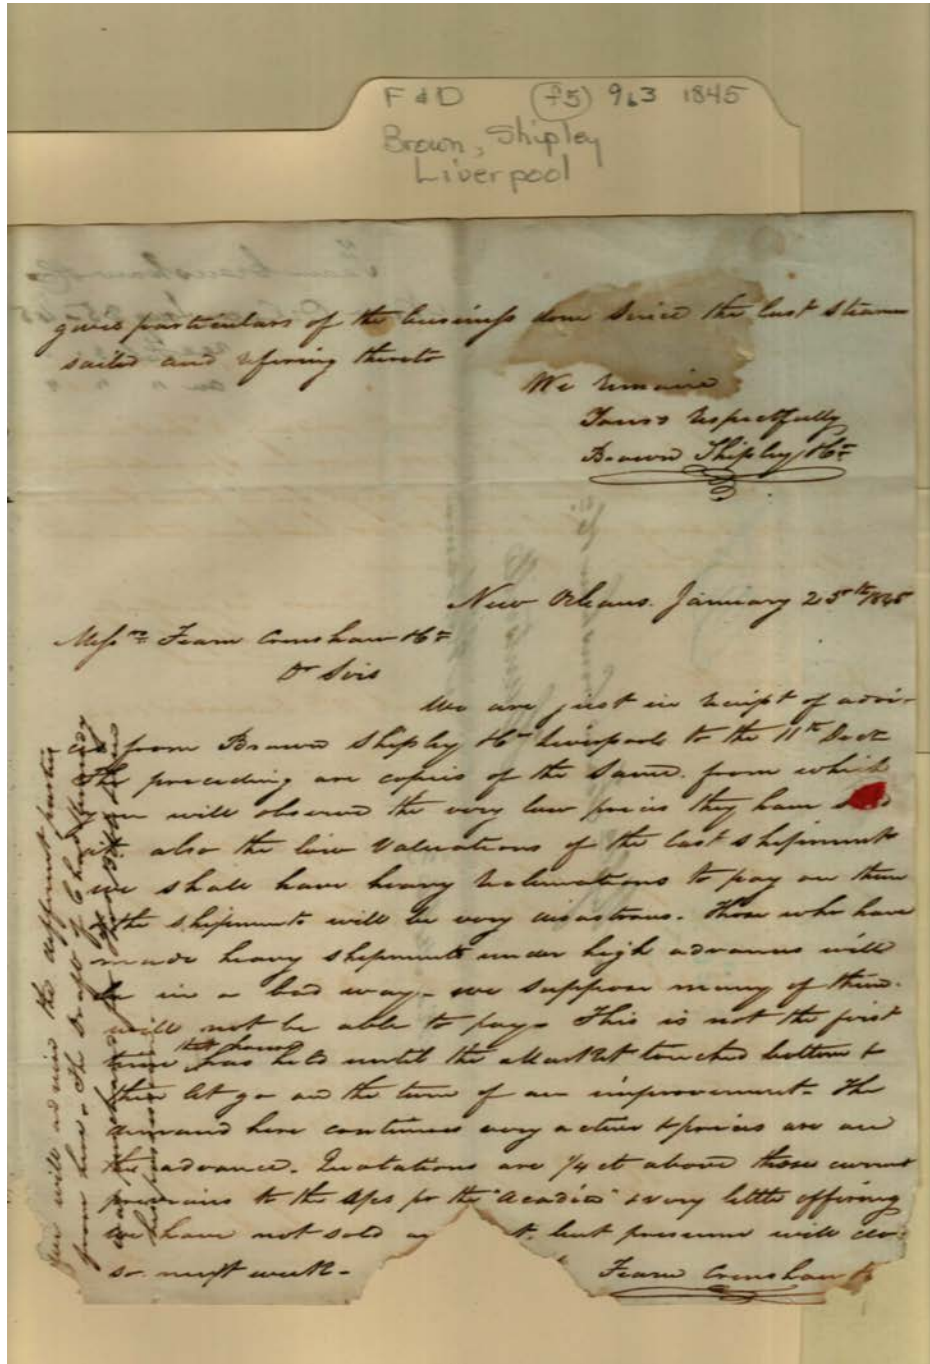 F & D (f5) 963 1845
Brown, Shipley
Liverpool
gives particulars of the business done since the last steamer
sailed and refering thereto
We remain
Yours respectfully
Brown Shipley & Co
New Orleans. January 25th 1845
Messrs Fearn Crenshaw & Co
Dr Sirs
We are just in receipt of advi-
ces from Brown Shipley & Co Liverpool to the 11th Decr
The preceding are copies of the same. from which
you will observe the very low prices they have
at also the low valuations of the last shipments
we shall have heavy reclamations to pay on them
the shipments will be very disastrous. Those who have
made heavy shipments under high advances will
be in a bad way - we suppose many of them.
will not be able to pay. This is not the first
time that house has held until the Market touched bottom &
then let go on the turn of an improvement. The
demand here continues very active & prices are on
the advance. Quotations are 1/4 ct above those current
previous to the aps pr the "Acadia" & very little offering
We have not sold but presume will do
so next week -
Fearn Crenshaw &
You will advise the different parties
from here. The Draft of